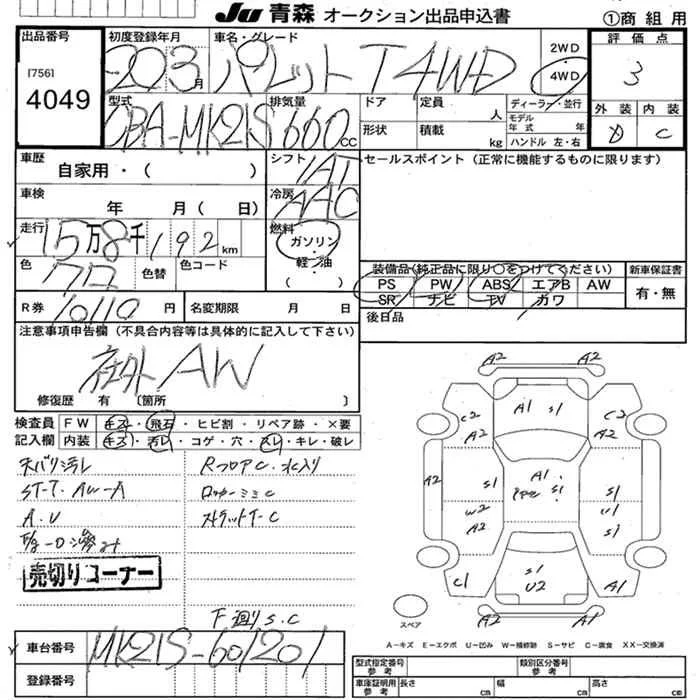 JU 青森 オークション出品申込書 ①商組用
出品番号
[756]
4049
初度登録年月
20 3月
車名・グレード
パレット T 4WD
2WD
4WD
評価点
3
外装 内装
D C
型式
CBA-MK21S
排気量
660cc
ドア
定員 人
ディーラー・並行
モデル年式 年式
形状
積載 kg
ハンドル 左・右
車歴
自家用・( )
シフト
IAT
セールスポイント(正常に機能するものに限ります)
車検
年 月( 日)
冷房
AAC
走行
15万8千192km
燃料
ガソリン・
軽・油
( )
色
色替
色コード
装備品(純正品に限り○をつけてください)
新車保証書
PS PW ABS エアB AW
SR ナビ TV カワ
有・無
R券
10110円
名変期限 月 日
後日品
注意事項申告欄(不具合内容等は具体的に記入して下さい)
社外AW
修復歴 有 〔箇所 〕
検査員
記入欄
FW キズ・飛石・ヒビ割・リペア跡・×要
内装 キズ・汚れ・コゲ・穴・スレ・キレ・破レ
天バリ汚レ
ST-T. AW-A
A.U
売切りコーナー
RフロアC.水入り
ロッカーミミC
ストラットT-C
F廻りS.C
A2 A2
C2 A1 S1 C2
A2 A2
A2 A1 S1
S1 S1
W2 U1
A2 S1
C1 S1 U2 A1
A2 A1
スペア
A-キズ E-エクボ U-凹み W-補修跡 S-サビ C-腐食 XX-交換済
車台番号
MK21S-601201
登録番号
型式指定番号 参考
類別区分番号 参考
車庫証明用 参考
長さ cm
幅 cm
高さ cm